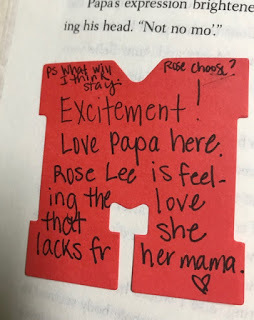 Papa's expression brightene
ing his head. "Not no mo'."
PS What will Rose choose?
I think
stay.
Excitement!
Love Papa here.
Rose Lee is feel-
ing the love
that she
lacks fr her mama.